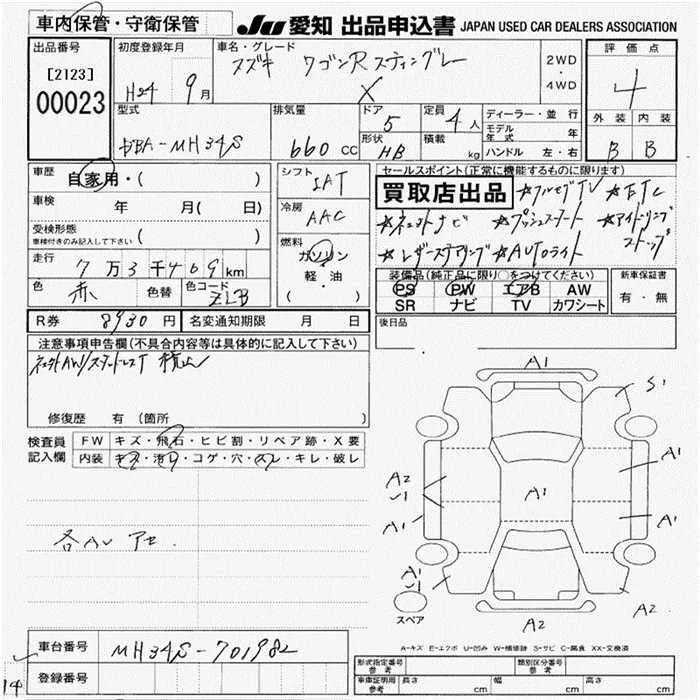 車内保管・守衛保管
JU 愛知 出品申込書 JAPAN USED CAR DEALERS ASSOCIATION
出品番号
[2123]
00023
初度登録年月
H24 9月
車名・グレード
スズキ ワゴンRスティングレー
X
2WD
・
4WD
評価点
4
型式
DBA-MH34S
排気量
660cc
ドア
5
形状
HB
定員
4人
積載
kg
ディーラー・並行
モデル年式 年
ハンドル 左・右
外装 内装
B B
車歴
自家用・( )
車検 年 月( 日)
受検形態
車検付きのみ記入して下さい ( )
走行
7万3千469km
色
赤
色替
色コード
ZLB
シフト
IAT
冷房
AAC
燃料
ガソリン
軽・油
( )
セールスポイント(正常に機能するものに限ります)
買取店出品
☆フルセグTV ☆ETC
☆ネットナビ ☆プッシュスタート ☆アイドリングストップ
☆レザーステアリング ☆AUTOライト
装備品(純正品に限り○をつけてください)
PS PW エアB AW
SR ナビ TV カワシート
新車保証書
有・無
R券 8930円
名変通知期限 月 日
後日品
注意事項申告欄(不具合内容等は具体的に記入して下さい)
修復歴 有(箇所 )
検査員
記入欄
FW キズ・飛石・ヒビ割・リペア跡・X要
内装 キズ・汚レ・コゲ・穴・スレ・キレ・破レ
各AW アセ.
A1
S1
A2
A1
A1
A1
A1
A1
A1
スペア
A2
A2
A-キズ E-エクボ U-凹み W-補修跡 S-サビ C-腐食 XX-交換済
車台番号 MH34S-701982
登録番号
14
形式指定番号
参考
類別区分番号
参考
車庫証明用
参考
長さ cm 幅 cm 高さ cm